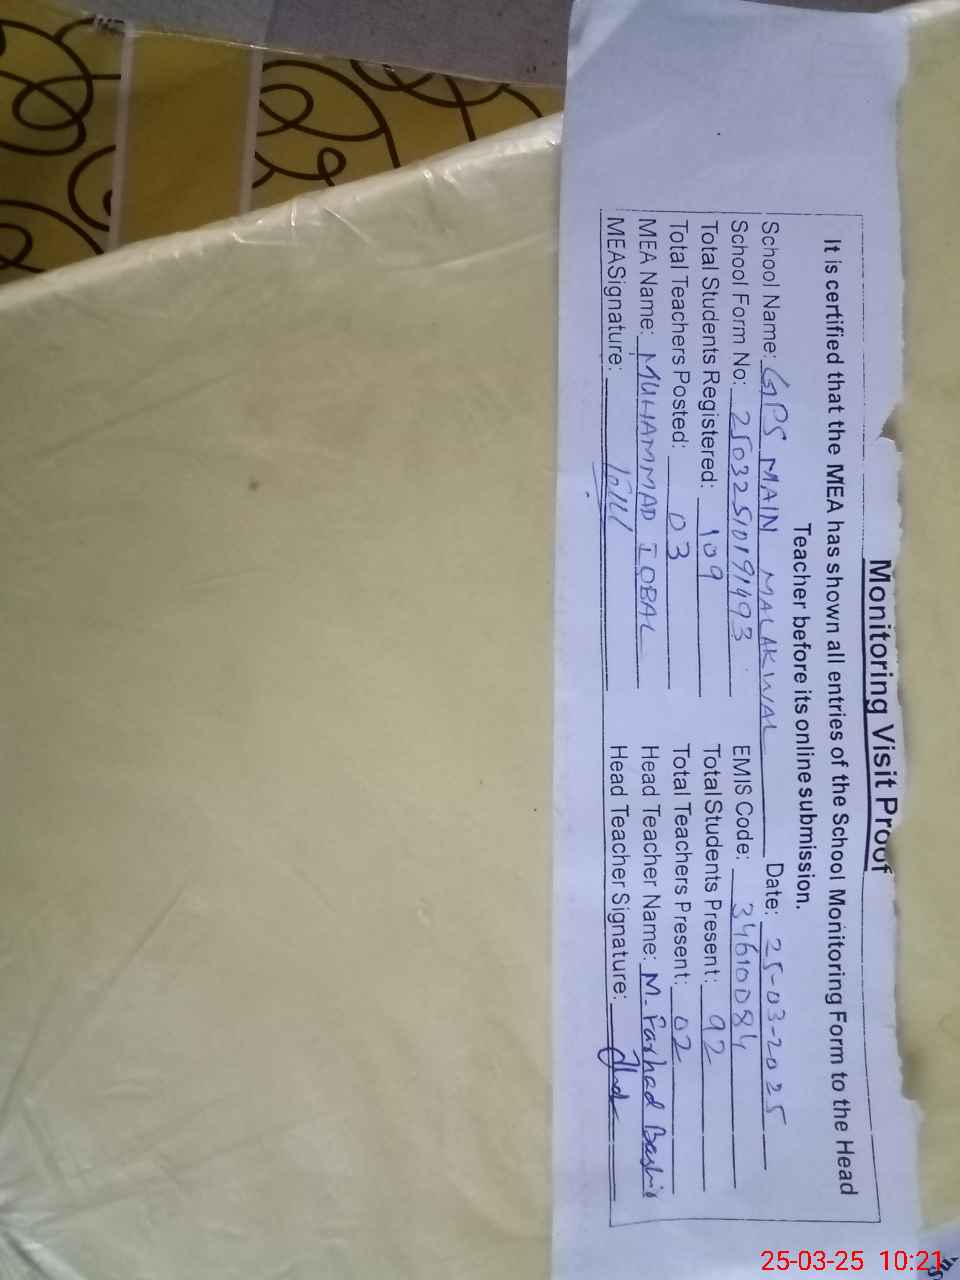 Monitoring Visit Proof
It is certified that the MEA has shown all entries of the School Monitoring Form to the Head
Teacher before its online submission.
School Name: GPS MAIN MALAKWAL Date: 25-03-2025
School Form No: 25032510191493 EMIS Code: 34610084
Total Students Registered: 109 Total Students Present: 92
Total Teachers Posted: 03 Total Teachers Present: 02
MEA Name: MUHAMMAD IQBAL Head Teacher Name: M. Farhad Bashir
MEASignature: Head Teacher Signature:
25-03-25 10:21